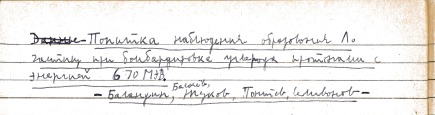 ~~Данные~~ Попытка наблюдения образования Λ₀
частиц при бомбардировке углерода протонами с
энергией 670 МэВ
Басилев,
– Баландин, Жуков, Понтек, Селиванов –